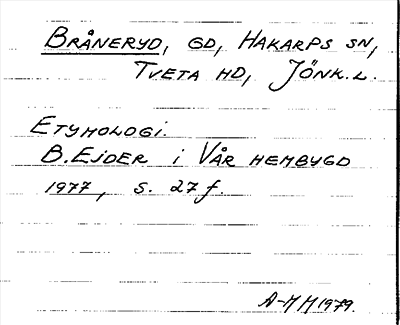 BRÅNERYD, GD, HAKARPS SN,
TVETA HD, JÖNK. L.
ETYMOLOGI.
B. EJDER i VÅR HEMBYGD
1977, s. 27 f.
A-MM 1979.